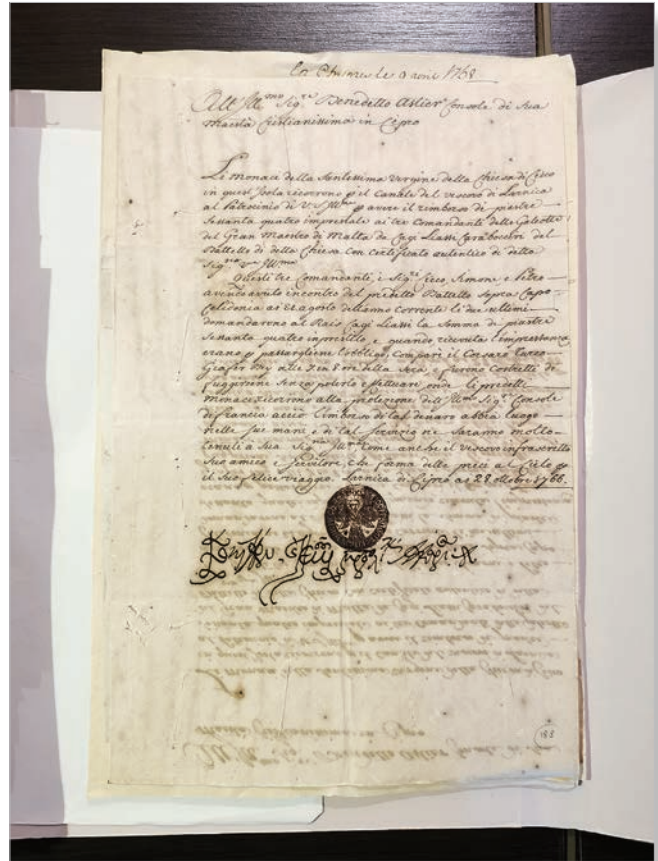 1768
All' Ill.mo Sig.re Benedetto Astier Console di Sua
Maestà Cristianissima in Cipro
Le Monace della Santissima Vergine della Chiesa di Cicco
in quest' Isola ricorrono p il canale del vescovo di Larnica
al Patrocinio di V.S. Ill.ma p avere il rimborso di piastre
Sessanta quatro imprestate ai tre Comandanti delle Galeotte
del Gran Maestro di Malta da Cagi Liassi Caraboccieri del
Battello di detta Chiesa con certificato autentico di detto
Sig.re Ill.mo
Questi tre Comandanti, i Sig.ri Cicco, Simone, e Petro
avendo avuto incontro del predetto Battello sopra Capo
Celidonia ai agosto dell'anno corrente le due ultimi
domandarono al Rais Cagi Liassi la somma di piastre
Sessanta quatro in prestito, e quando ricevuta l'imprestanza
erano p passargliene l'obbligo, compari il Corsaro Turco
Giafer Bey alle 7 in 8 ore della sera, e furono costretti di
fuggirsene senza poterlo effettuare onde li predetti
Monaci ricorrono alla protezione dell' Ill.mo Sig.re Console
di Francia acciò l'imborso di tal denaro abbia luogo
nelle sue mani e di tal servizio ne saranno molto
tenuti a Sua Sig.ria Ill.ma Come anche il vescovo infrascritto
Suo amico e Servitore, che forma delle preci al Cielo p
il suo felice viaggio. Larnica di Cipro ai 28 ottobre 1766.
183